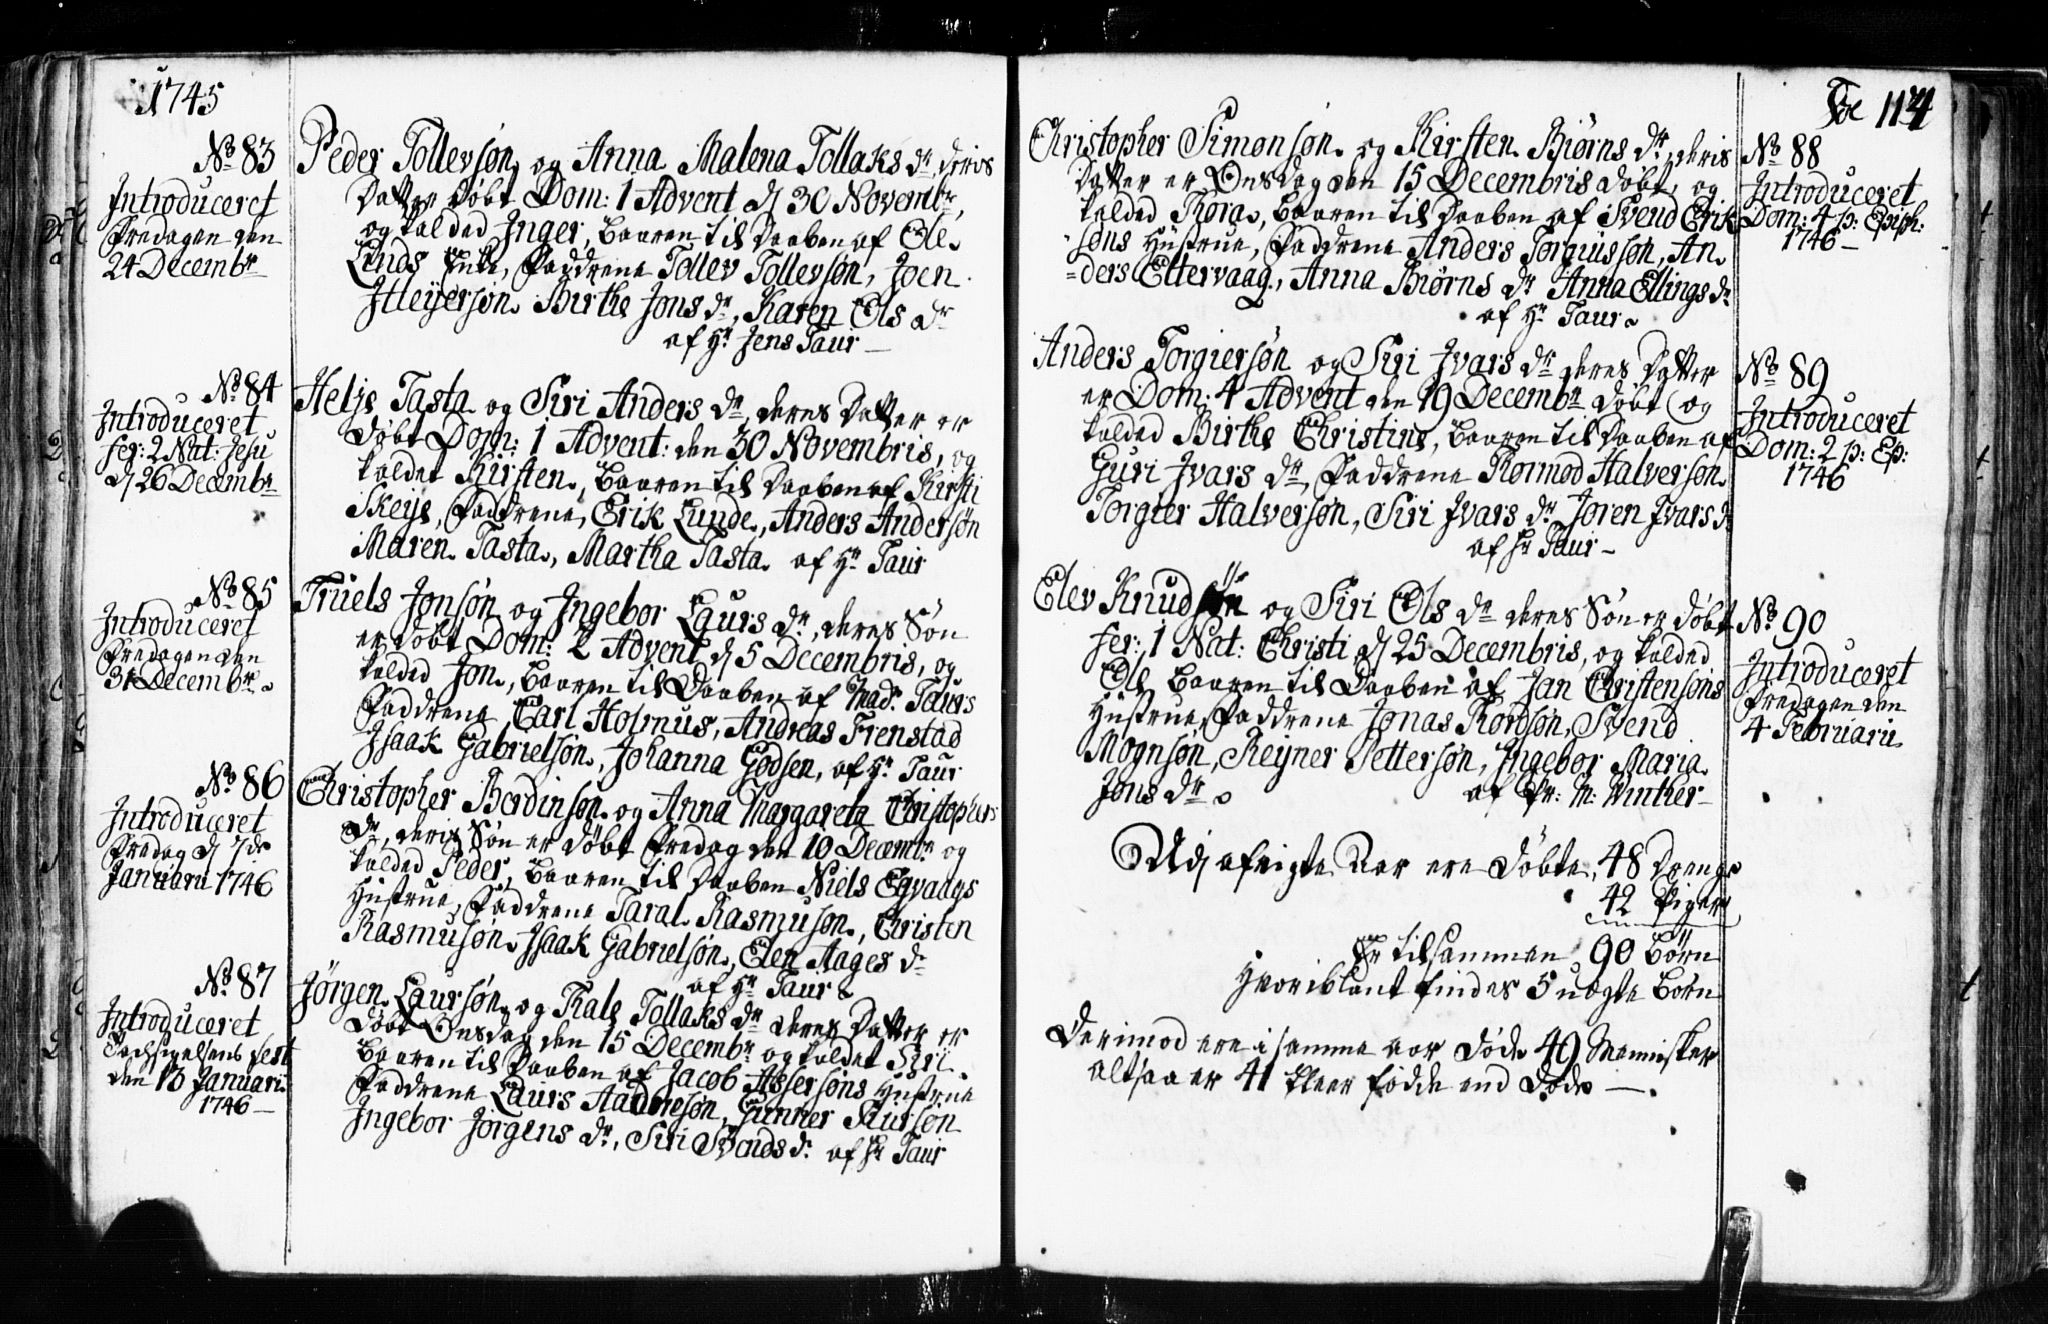 1745
No 83
Introduceret
Fredagen den
24 Decembr
Peder Tollevsøn og Anna Malena Tollaks dr, deris
Datter døbt Dom: 1 Advent d 30 Novembr,
og kalded Inger, baaren til Daaben af Ole
Linds Enke, Faddrene Tollev Tollevsøn, Joen
Birthe Jons dr, Karen Ols dr
af Hr Jens Taur
No 84
Introduceret
Fer: 2 Nat: Jesu
d 26 Decembr
Helje Tasta og Siri Anders dr, deres Datter er
døbt Dom: 1 Advent: den 30 Novembris, og
kaldet Kirsten, baaren til Daaben af Kirsti
Skeije, Faddrene, Erik Lunde, Anders Andersøn
Maren Tasta, Martha Tasta af Hr Taur
No 85
Introduceret
Fredagen den
31 Decembr
Truels Jonsøn og Ingebor Laurs dr, deres Søn
er døbt Dom: 2 Advent d 5 Decembris, og
kalded Jon, baaren til Daaben af Mad. Taurs
Faddrene Carl Holmus, Andreas Frenstad
Isaak Gabrielsøn, Johanna Godsen, af Hr Taur
No 86
Introduceret
Fredag d 7de
Januaru 1746
Christopher Berdinsøn og Anna Margareta Christophers
dr, deris Søn er døbt Fredag den 10 Decembr og
kalded Peder, baaren til Daaben Niels Egvaags
Hustrue, Faddrene Taral Rasmusøn, Christen
Rasmusøn, Isaak Gabrielsøn, Elen Aages dr
af Hr Taur
No 87
Introduceret
fest
den 13 Januari
1746
Jørgen Laursøn og Thale Tollaks dr deres Datter er
døbt Onsdag den 15 Decembr og kaldet Siri
baaren til Daaben af Jacob Assersøns Hustrue
Faddrene Laurs Aadnesøn, Gunner Siursøn
Ingebor Jørgens dr, Siri Svends dr af Hr Taur
114
Christopher Simonsøn og Kirsten Biørns dr, deris
Datter er Onsdag den 15 Decembris døbt, og
kalded Thora, baaren til Daaben af Svend Erik
søns Hustrue, Faddrene Anders Torgiusson, An
ders Ettervaag, Anna Biørns dr Anna Ellings dr
af Hr Taur
No 88
Introduceret
Dom: 4 p: Epiph:
1746
Anders Torgiersøn og Siri Ivars dr deres Datter
er Dom: 4 Advent den 19 Decembr døbt og
kalded Birthe Christine, baaren til Daaben af
Guri Ivars dr, Faddrene Thormod Halversøn
Torgier Halversøn, Siri Ivars dr Joren Ivars dr
af Hr Taur
No 89
Introduceret
Dom: 2 p: Ep:
1746
Elev Knudsøn og Siri Ols dr deres Søn er døbt
Fer: 1 Nat: Christi d 25 Decembris, og kalded
Ole baaren til Daaben af Jan Christensøns
Hustrue, Faddrene Jonas Thordsøn, Svend
Mognsøn, Reyner Pettersøn, Ingebor Maria
Jons dr af Pr: M: Winther
No 90
Introduceret
Fredagen den
4 Februaru
Udj afvigte Aar ere døbte, 48 Drenge
42 Piger
Er tilsammen 90 Børn
Hvoriblant findes 5 uægte Børn
Derimod ere i samme aar døde 49 Mennisker
altsaa er 41 fleer fødde end døde